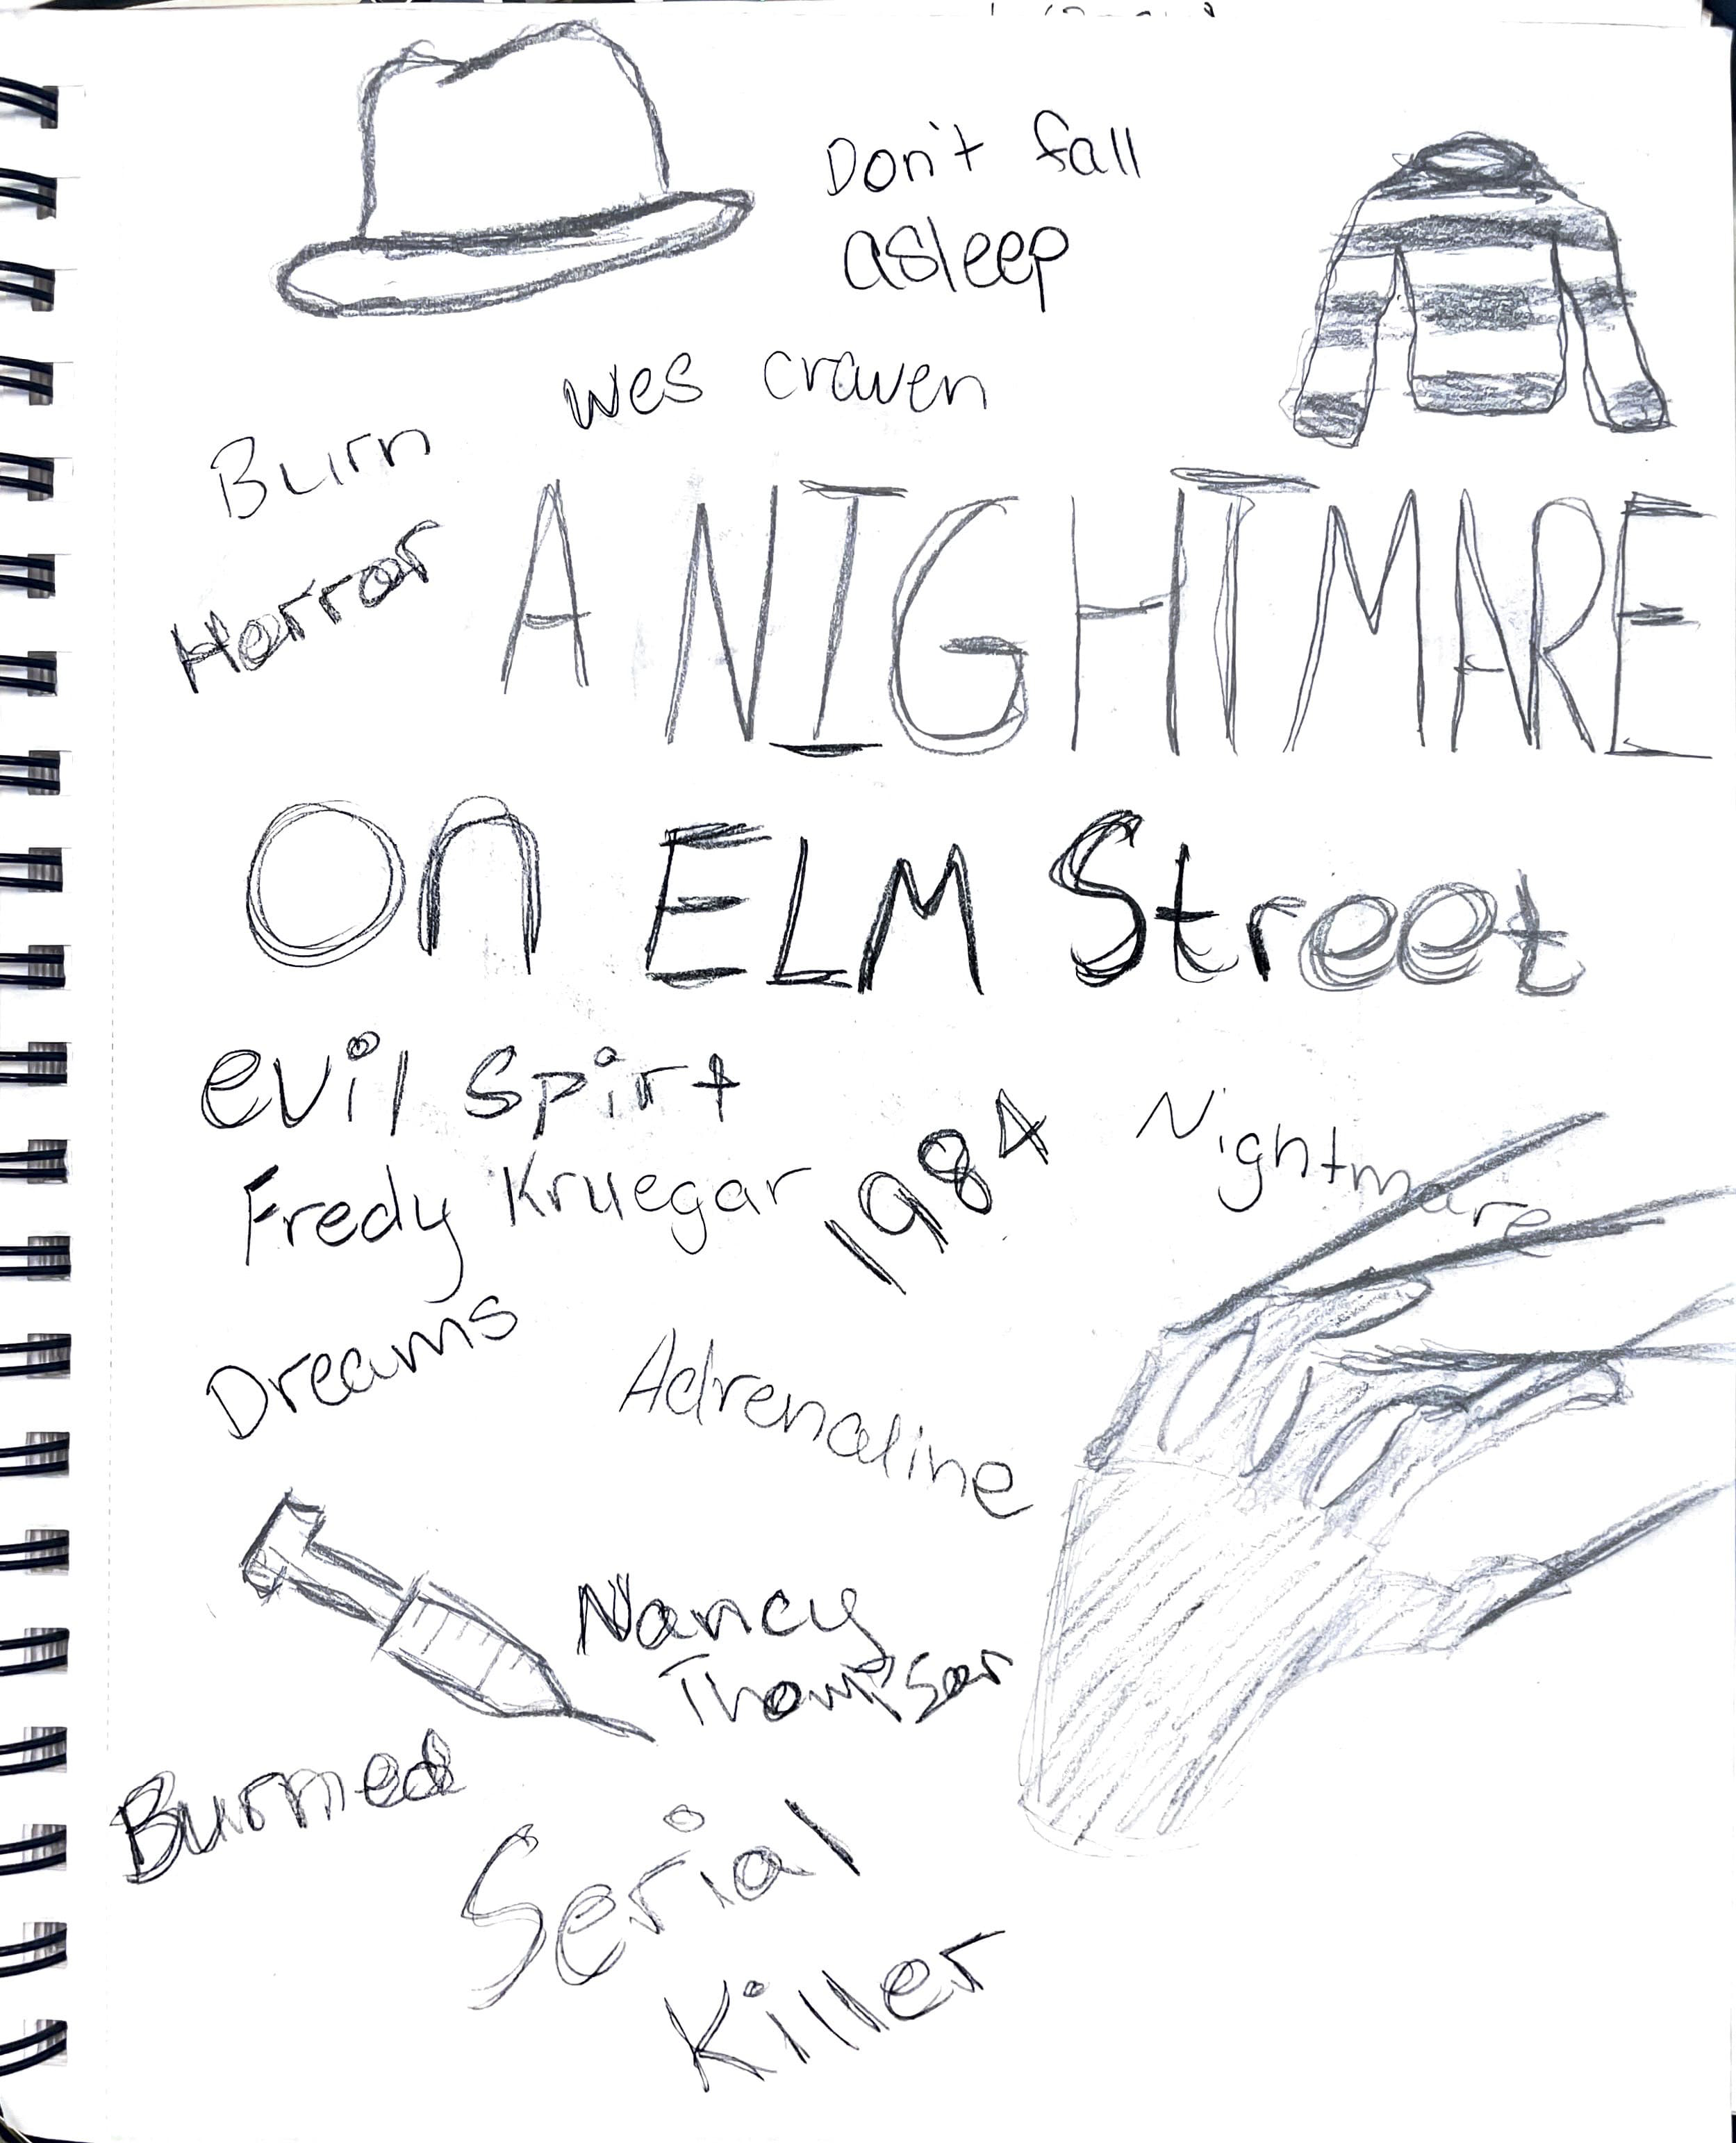 Don't fall
asleep
Wes Craven
Burn
Horror
A NIGHTMARE
On ELM Street
evil spirt
Fredy Kruegar
1984
Nightmare
Dreams
Adrenaline
Nancy
Thompson
Burned
Serial
Killer